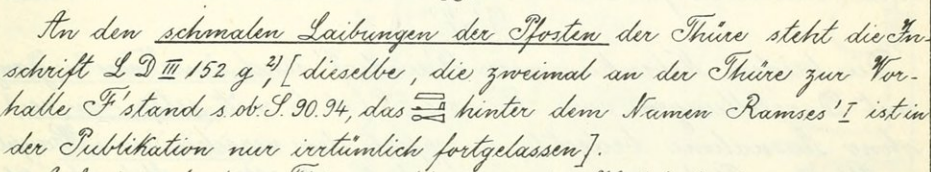 An den schmalen Laibungen der Pfosten der Thüre steht die In-
schrift L D III 152 g,²⁾ [dieselbe, die zweimal an der Thüre zur Vor-
halle F' stand s. ob. S. 90. 94, das hinter dem Namen Ramses' I ist in
der Publikation nur irrtümlich fortgelassen].